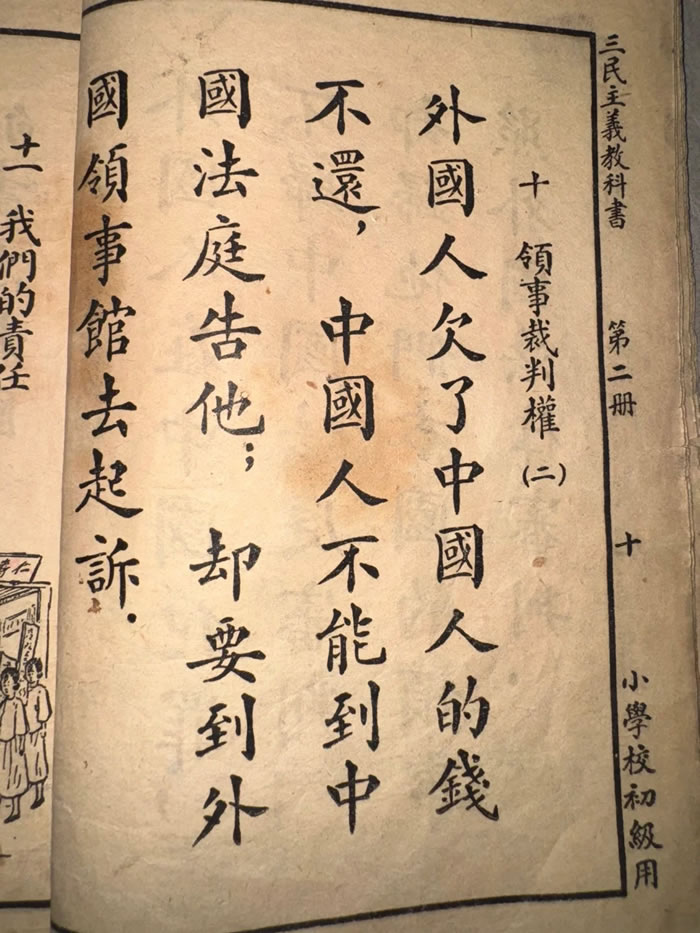 三民主義教科書 第二册 十 小學校初級用
十 領事裁判權(二)
外國人欠了中國人的錢
不還, 中國人不能到中
國法庭告他; 却要到外
國領事館去起訴.
十一 我們的責任